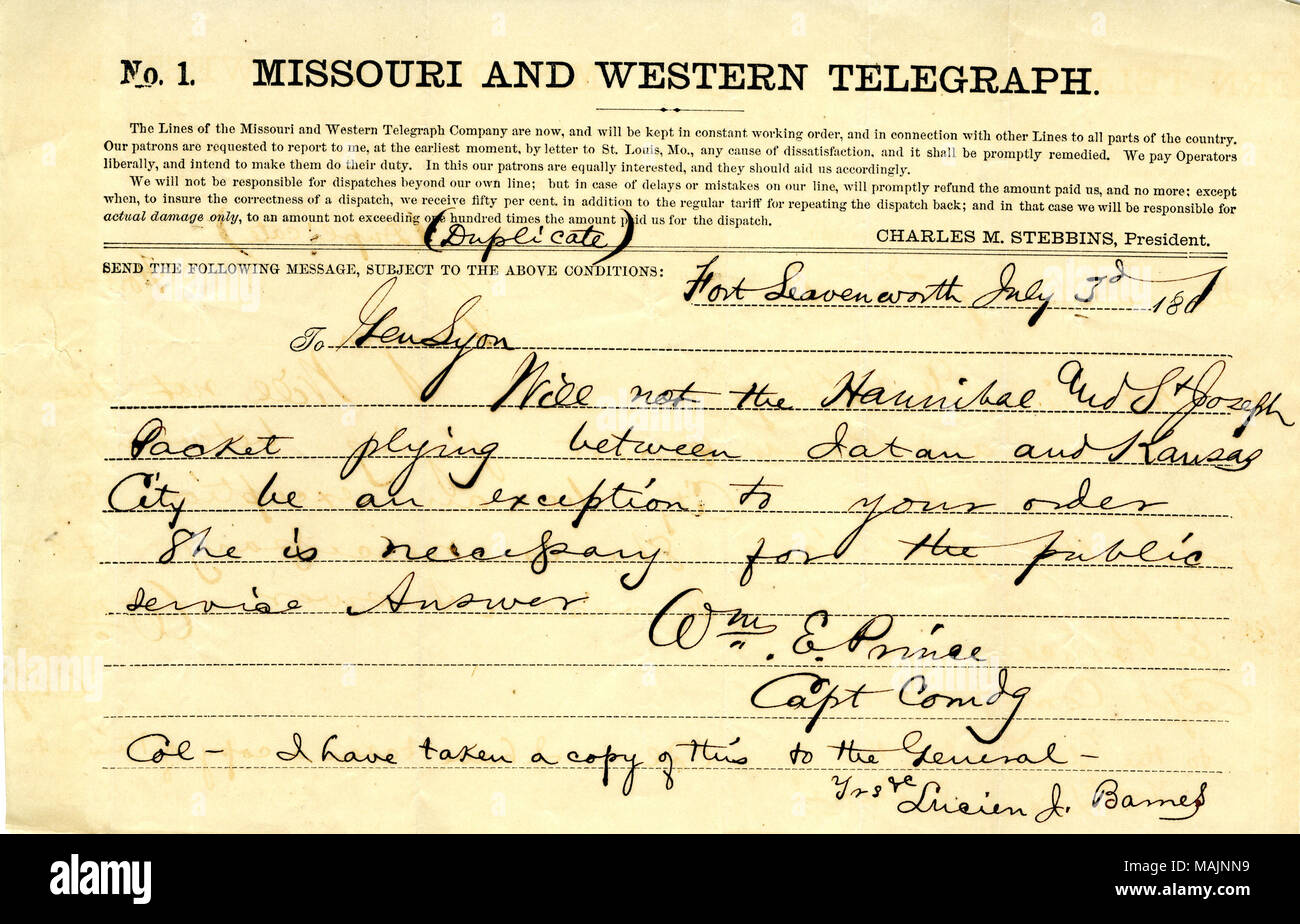 No. 1. MISSOURI AND WESTERN TELEGRAPH.
The Lines of the Missouri and Western Telegraph Company are now, and will be kept in constant working order, and in connection with other Lines to all parts of the country.
Our patrons are requested to report to me, at the earliest moment, by letter to St. Louis, Mo., any cause of dissatisfaction, and it shall be promptly remedied. We pay Operators
liberally, and intend to make them do their duty. In this our patrons are equally interested, and they should aid us accordingly.
We will not be responsible for dispatches beyond our own line; but in case of delays or mistakes on our line, will promptly refund the amount paid us, and no more; except
when, to insure the correctness of a dispatch, we receive fifty per cent. in addition to the regular tariff for repeating the dispatch back; and in that case we will be responsible for
actual damage only, to an amount not exceeding one hundred times the amount paid us for the dispatch.
(Duplicate)
CHARLES M. STEBBINS, President.
SEND THE FOLLOWING MESSAGE, SUBJECT TO THE ABOVE CONDITIONS:
Fort Leavenworth July 3d 1861
To Gen Lyon
Will not the Hannibal And St Joseph
Packet plying between Iatan and Kansas
City be an exception to your order
She is necessary for the public
service Answer
Wm. E. Prince
Capt Comdg
Col - I have taken a copy of this to the General -
Yrs &c Lucien J. Barnes
alamy
alamy
Image ID: MAJNN9
www.alamy.com